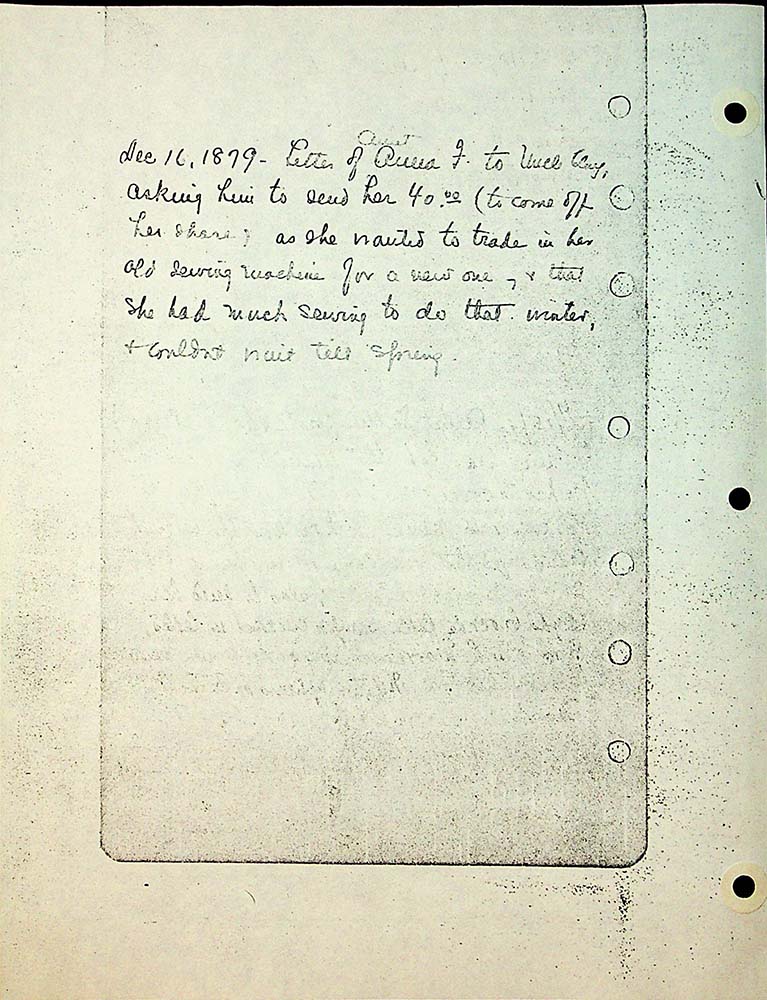 Dec 16, 1879 - Letter of Aunt Anna F. to Uncle
asking him to send her 40.00 (to come off
her share) as she wanted to trade in her
old sewing machine for a new one, & that
she had much sewing to do that winter,
& couldn't wait till spring.